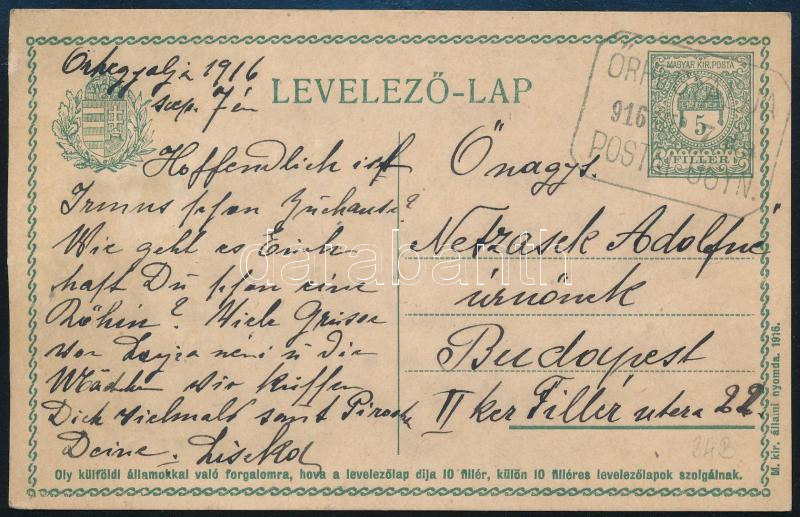 Őrhegyalja 1916
szep. 7én
LEVELEZŐ-LAP
MAGYAR KIR. POSTA
5
FILLER
916
Hoffendlich ist
Irmus schon Zuhause?
Wie geht es Euch
haft Du schon eine
Köhin? Viele Grüsse
von néni u die
Mädchen wir küssen
Dich vielmals samt Piroska
Deine Liseka
Önagys.
Netzasek Adolfné
úrnőnek
Budapest
II ker Fillér utca 22.
342
darabanth
Oly külföldi államokkal való forgalomra, hova a levelezőlap dija 10 fillér, külön 10 filléres levelezőlapok szolgálnak.
M. kir. állami nyomda. 1916.